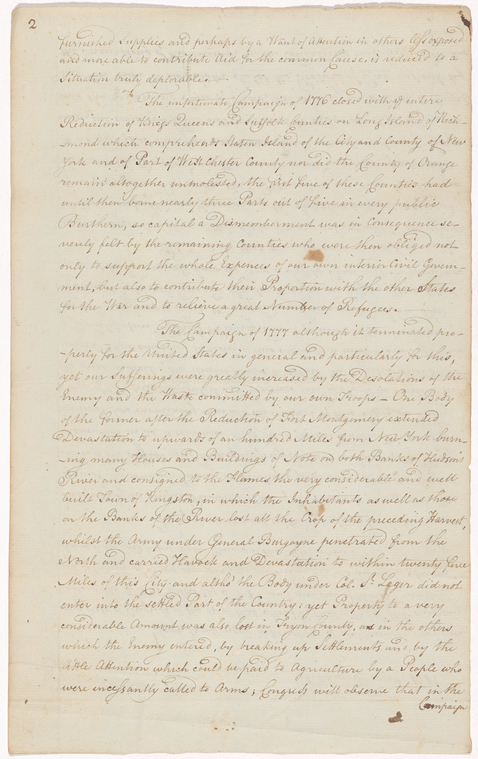 2
furnished Supplies and perhaps by a Want of Attention in others less exposed
and more able to contribute Aid for the common Cause, is reduced to a
Situation truly deplorable.
The unfortunate Campaign of 1776 closed with ye entire
Reduction of Kings Queens and Suffolk Counties on Long Island of Rich-
mond which comprehends Staten Island of the City and County of New
York and of Part of West Chester County nor did the County of Orange
remain altogether unmolested, the first five of these Counties had
until then borne nearly three Parts out of five in every public
Burthen, so capital a Dismemberment was in Consequence se-
verely felt by the remaining Counties who were then obliged not
only to support the whole Expence of our own interior Civil Govern-
ment, but also to contribute their Proportion with the other States
for the War and to relieve a great Number of Refugees.
The Campaign of 1777 although it terminated pros-
-perly for the United States in general and particularly for this,
yet our Sufferings were greatly increased by the Desolations of the
Enemy and the Waste committed by our own Troops – One Body
of the former after the Reduction of Fort Montgomery extended
Devastation to upwards of an hundred Miles from New York burn-
ing many Houses and Buildings of Note on both Banks of Hudson's
River and consigned to the Flames the very considerable and well
built Town of Kingston, in which the Inhabitants as well as those
on the Banks of the River lost all the Crop of the preceding Harvest,
whilst the Army under General Burgoyne penetrated from the
North and carried Havock and Devastation to within twenty five
Miles of this City and altho' the Body under Col. St. Leger did not
enter into the settled Part of the Country, yet Property to a very
considerable Amount was also lost in Tryon County, as in the others
which the Enemy entered, by breaking up Settlements and by the
little Attention which could be paid to Agriculture by a People who
were incessantly called to Arms; Congress will observe that in the
Campaign